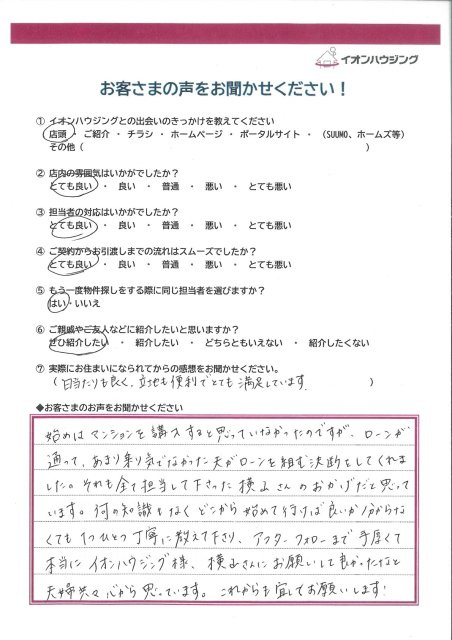 イオンハウジング
お客さまの声をお聞かせください！
① イオンハウジングとの出会いのきっかけを教えてください
店頭 ・ ご紹介 ・ チラシ ・ ホームページ ・ ポータルサイト ・ （SUUMO、ホームズ等）
その他（ ）
② 店内の雰囲気はいかがでしたか？
とても良い ・ 良い ・ 普通 ・ 悪い ・ とても悪い
③ 担当者の対応はいかがでしたか？
とても良い ・ 良い ・ 普通 ・ 悪い ・ とても悪い
④ ご契約からお引渡しまでの流れはスムーズでしたか？
とても良い ・ 良い ・ 普通 ・ 悪い ・ とても悪い
⑤ もう一度物件探しをする際に同じ担当者を選びますか？
はい・いいえ
⑥ ご親戚やご友人などに紹介したいと思いますか？
ぜひ紹介したい ・ 紹介したい ・ どちらともいえない ・ 紹介したくない
⑦ 実際にお住まいになられてからの感想をお聞かせください。
（日当たりも良く、立地も便利でとても満足しています。）
◆お客さまのお声をお聞かせください
始めはマンションを購入すると思っていなかったのですが、ローンが
通って、あまり乗り気でなかった夫がローンを組む決断をしてくれま
した。それも全て担当して下さった横山さんのおかげだと思って
います。何の知識もなくどこから始めて行けば良いか分からな
くても1つひとつ丁寧に教えて下さり、アフターフォローまで手厚くて
本当にイオンハウジング様、横山さんにお願いして良かったなと
夫婦共々心から思っています。これからも宜しくお願いします!